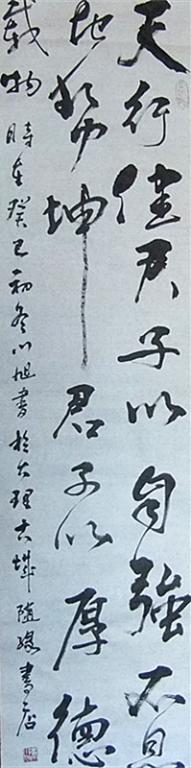 天行健君子以自強不息
地勢坤君子以厚德
載物
時在癸巳初冬小旭書於大理古城隨緣書店